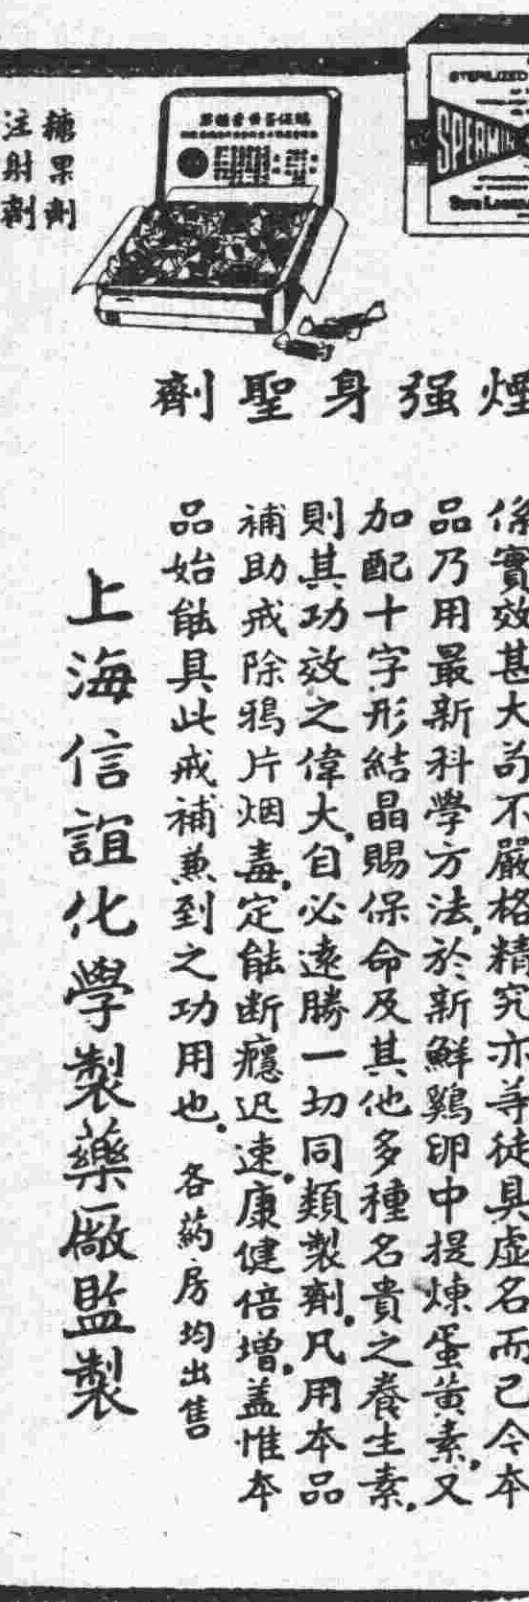 STERILIZED
SPERMIN
糖果劑
注射劑
煙强身聖劑
係實效甚大苟不嚴格精究亦等徒具虛名而已今本
品乃用最新科學方法,於新鮮鷄卵中提煉蛋黃素,又
加配十字形結晶賜保命及其他多種名貴之養生素,
則其功效之偉大,自必遠勝一切同類製劑,凡用本品
補助戒除鴉片烟毒,定能断癮迅速,康健倍增,盖惟本
品始能具此戒補兼到之功用也,各葯房均出售
上海信誼化學製藥厰監製